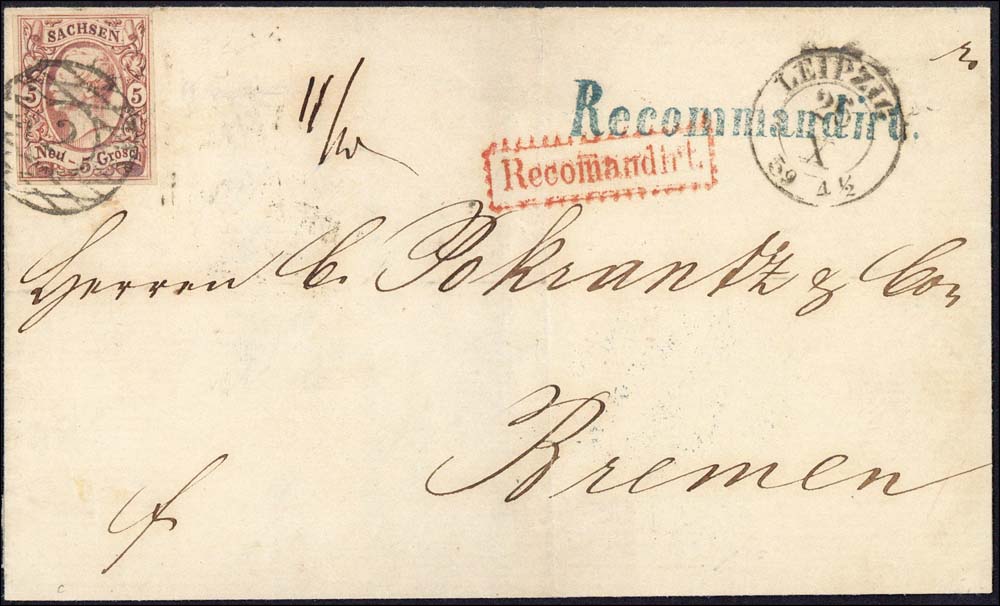 SACHSEN
5 5
Neu - 5 - Grosch
11/
Recommandirt.
Recomandirt.
LEIPZIG
26
X
59 4½
Herren C. Pokrantz & Co
Bremen
f